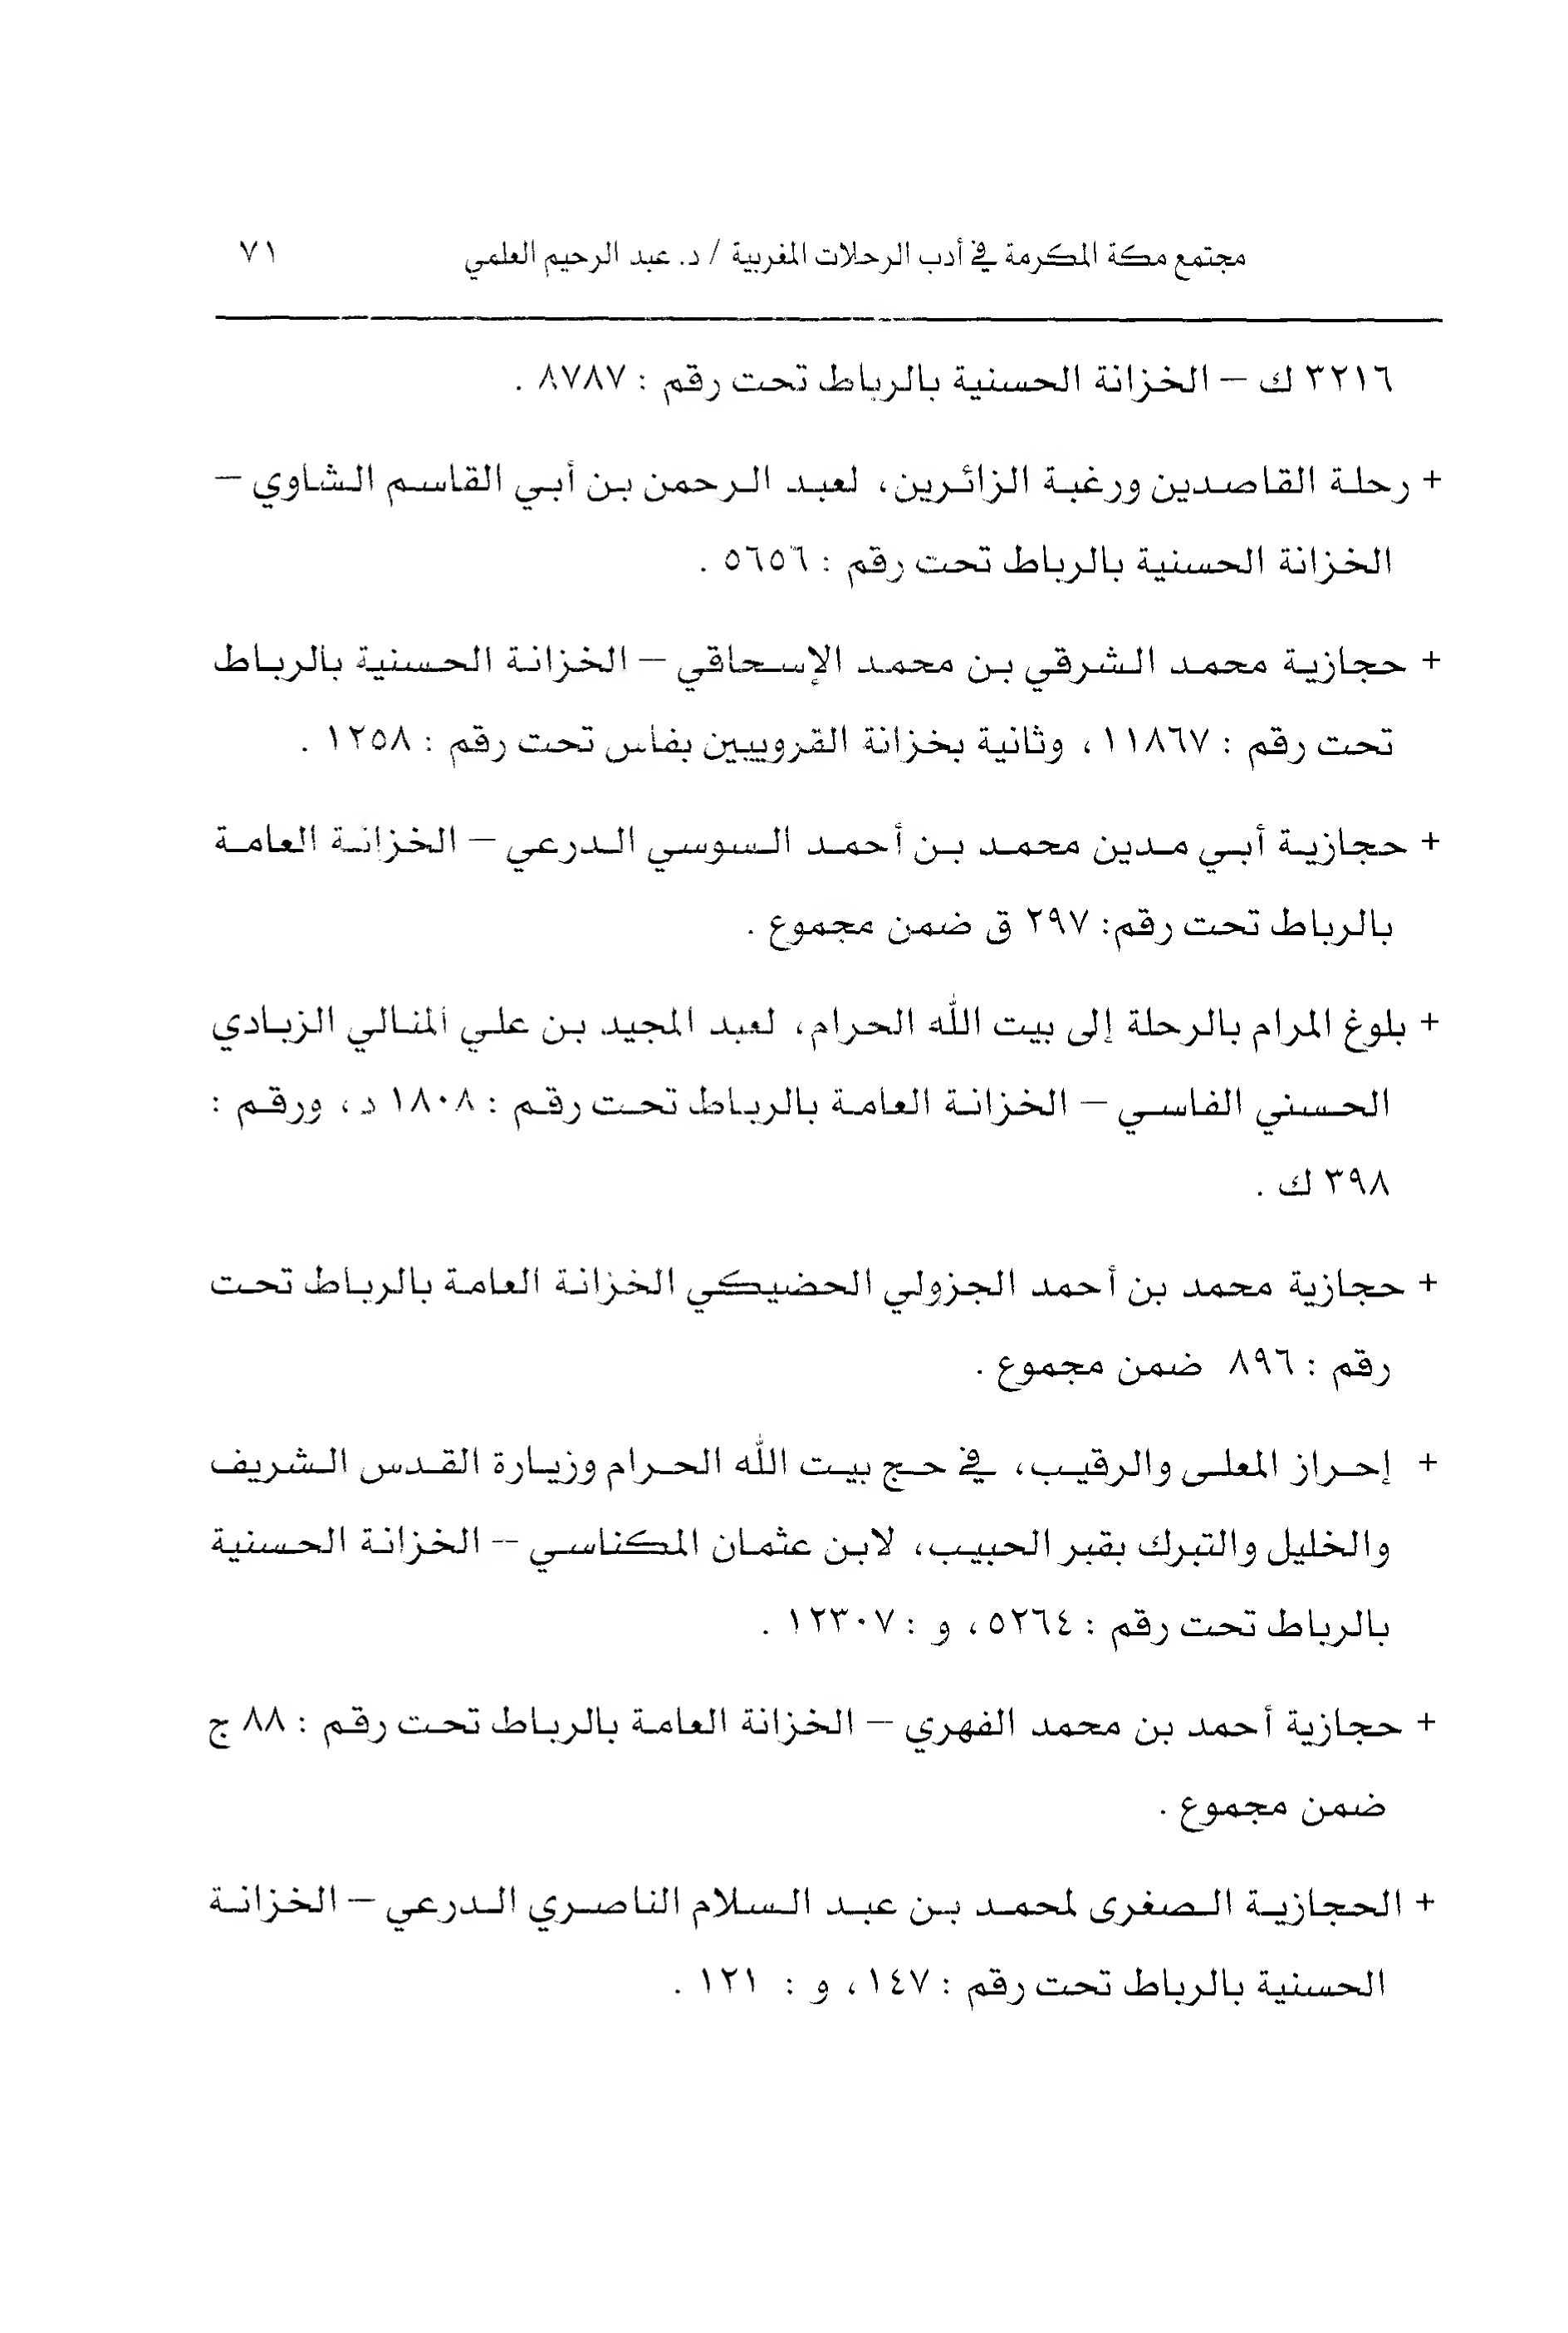 مجتمع مكة المكرمة في أدب الرحلات المغربية / د. عبد الرحيم العلمي ٧١
٣٢١٦ ك – الخزانة الحسنية بالرباط تحت رقم : ٨٧٨٧ .
+ رحلة القاصدين ورغبة الزائرين، لعبد الرحمن بن أبي القاسم الشاوي –
الخزانة الحسنية بالرباط تحت رقم : ٥٦٥٦ .
+ حجازية محمد الشرقي بن محمد الإسحاقي – الخزانة الحسنية بالرباط
تحت رقم : ١١٨٦٧ ، وثانية بخزانة القرويين بفاس تحت رقم : ١٢٥٨ .
+ حجازية أبي مدين محمد بن أحمد السوسي الدرعي – الخزانة العامة
بالرباط تحت رقم: ٢٩٧ ق ضمن مجموع .
+ بلوغ المرام بالرحلة إلى بيت الله الحرام، لعبد المجيد بن علي المنالي الزبادي
الحسني الفاسي – الخزانة العامة بالرباط تحت رقم : ١٨٠٨ د ، ورقم :
٣٩٨ ك .
+ حجازية محمد بن أحمد الجزولي الحضيكي الخزانة العامة بالرباط تحت
رقم : ٨٩٦ ضمن مجموع .
+ إحراز المعلى والرقيب، في حج بيت الله الحرام وزيارة القدس الشريف
والخليل والتبرك بقبر الحبيب، لابن عثمان المكناسي – الخزانة الحسنية
بالرباط تحت رقم : ٥٢٦٤ ، و : ١٢٣٠٧ .
+ حجازية أحمد بن محمد الفهري – الخزانة العامة بالرباط تحت رقم : ٨٨ ج
ضمن مجموع .
+ الحجازية الصغرى لمحمد بن عبد السلام الناصري الدرعي – الخزانة
الحسنية بالرباط تحت رقم : ١٤٧ ، و : ١٢١ .